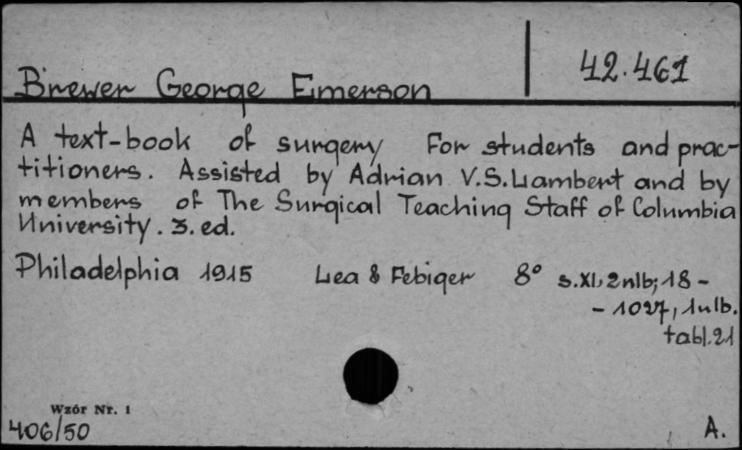 42.461
Brewer George Emerson
A text-book of surgery For students and prac-
titioners. Assisted by Adrian V.S. Lambert and by
members of The Surgical Teaching Staff of Columbia
University. 3. ed.
Philadelphia 1915 Lea & Febiger 8° s.XI, 2nlb; 18 -
- 1027, 1nlb.
tabl.21
Wzór Nr. 1
406/50 A.